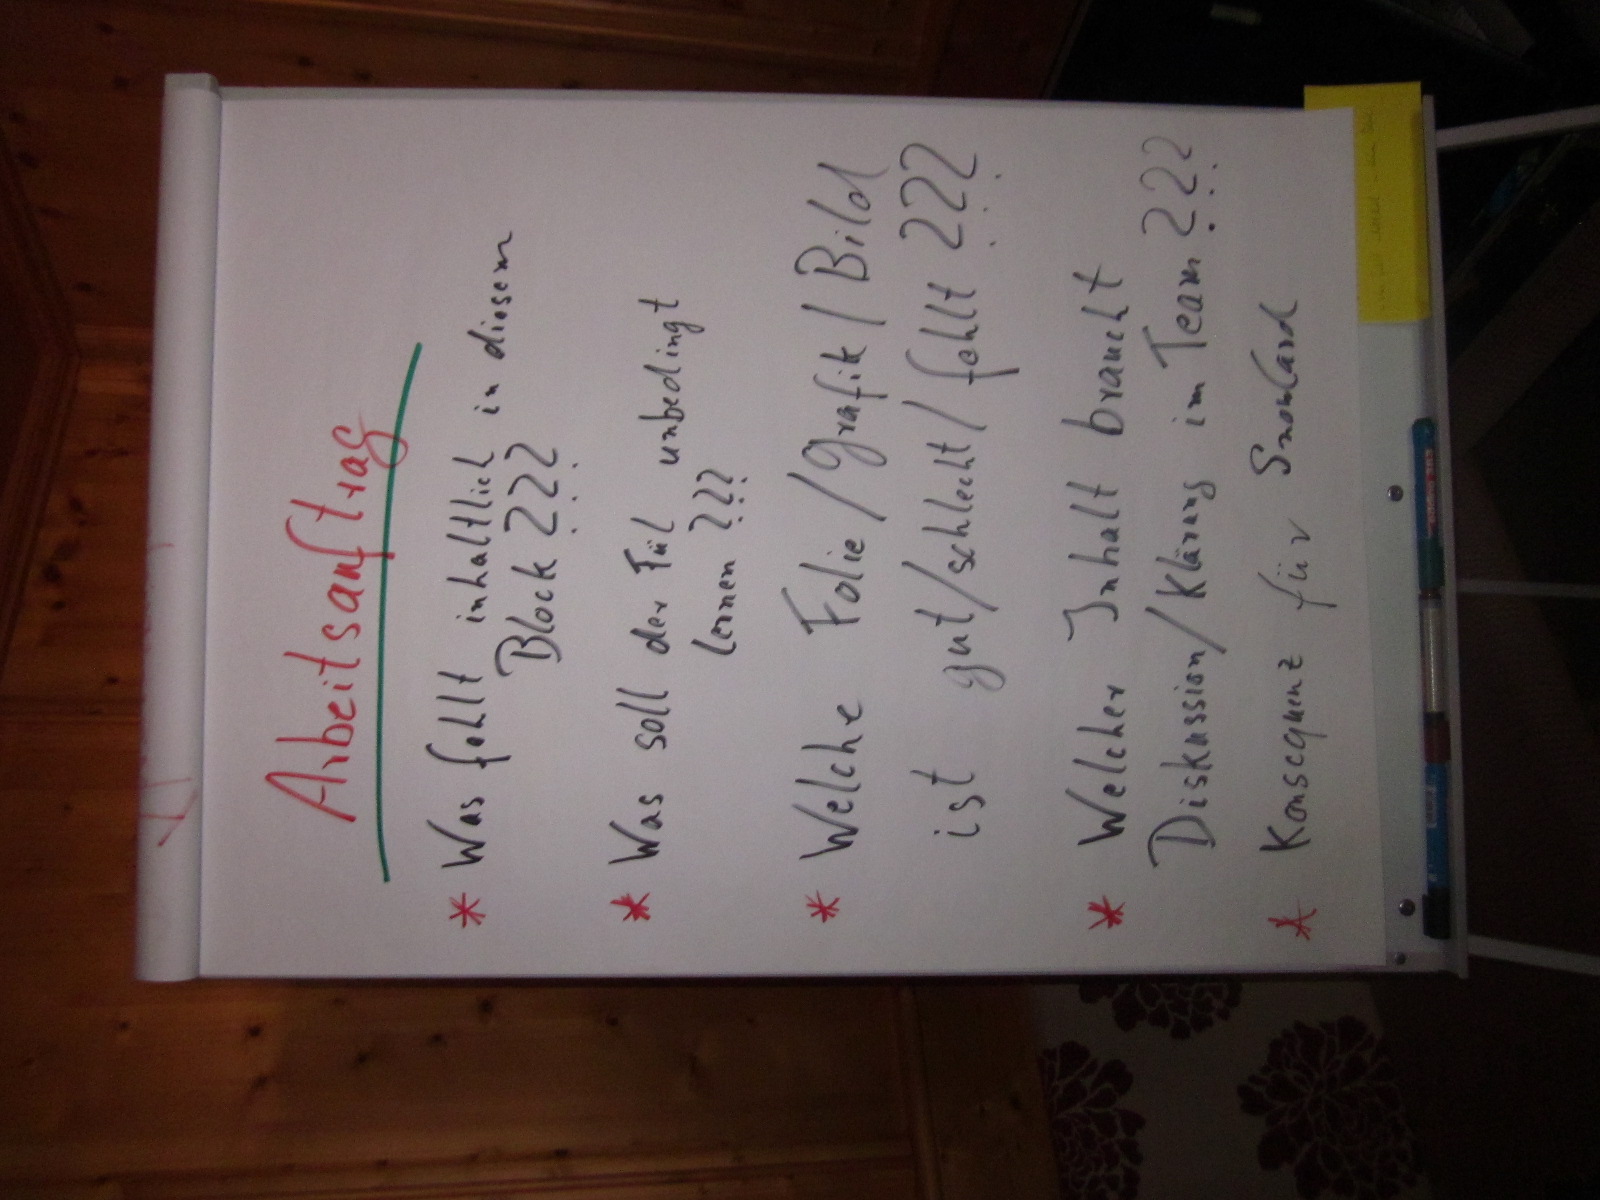 Arbeitsauftrag
* Was fehlt inhaltlich in diesem
Block ???
* Was soll der FüL unbedingt
lernen ???
* Welche Folie/Grafik/Bild
ist gut/schlecht/fehlt ???
* Welcher Inhalt braucht
Diskussion/Klärung im Team ???
* Konsequenz für SnowCard